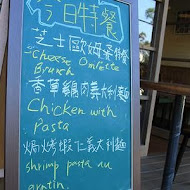 今日特餐
芝士歐姆蛋特餐
Cheese Omlete
Brunch
香草雞肉義大利麵
Chicken with
Pasta
焗烤蝦仁義大利麵
shrimp pasta au
gratin.